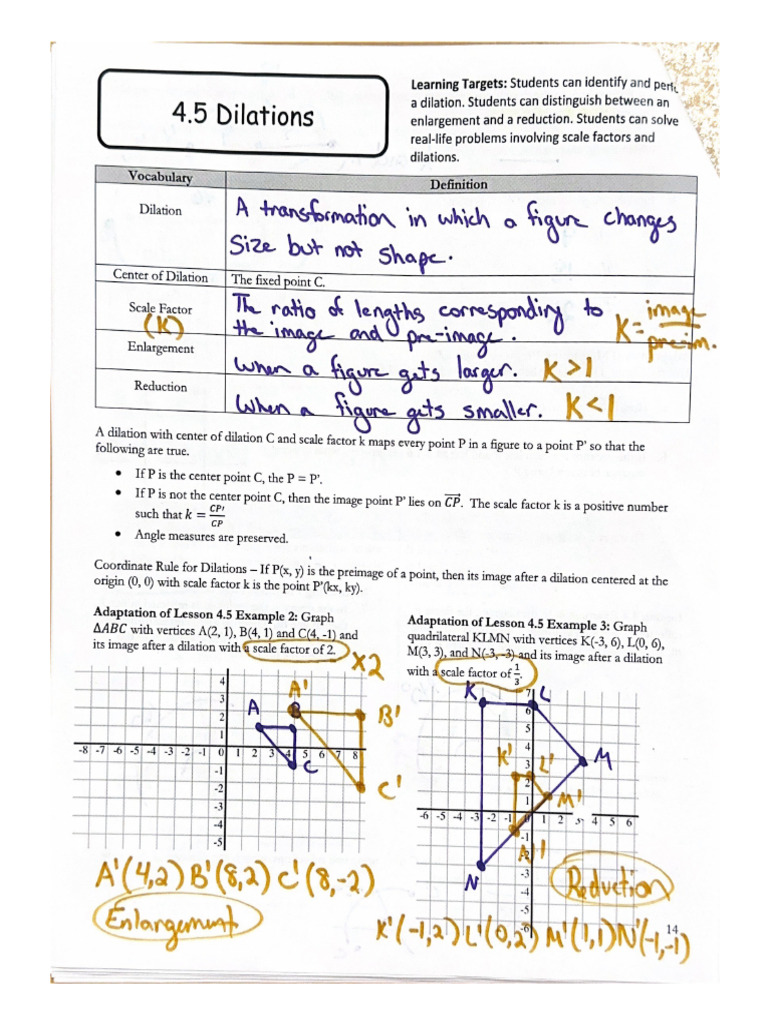 4.5 Dilations
Learning Targets: Students can identify and
a dilation. Students can distinguish between an
enlargement and a reduction. Students can solve
real-life problems involving scale factors and
dilations.
Vocabulary Definition
Dilation A transformation in which a figure changes
size but not shape.
Center of Dilation The fixed point C.
Scale Factor (K) The ratio of lengths corresponding to
the image and pre-image. K = image / pre-im.
Enlargement When a figure gets larger. K>1
Reduction When a figure gets smaller. K<1
A dilation with center of dilation C and scale factor k maps every point P in a figure to a point P' so that the
following are true.
• If P is the center point C, the P = P'.
• If P is not the center point C, then the image point P' lies on CP. The scale factor k is a positive number
such that k = CP'/CP
• Angle measures are preserved.
Coordinate Rule for Dilations – If P(x, y) is the preimage of a point, then its image after a dilation centered at the
origin (0, 0) with scale factor k is the point P'(kx, ky).
Adaptation of Lesson 4.5 Example 2: Graph
ΔABC with vertices A(2, 1), B(4, 1) and C(4, -1) and
its image after a dilation with a scale factor of 2.
x2
A A' B B'
C C'
4
3
2
1
-8 -7 -6 -5 -4 -3 -2 -1 0 1 2 3 4 5 6 7 8
-1
-2
-3
-4
-5
A'(4,2) B'(8,2) C'(8,-2)
Enlargement
Adaptation of Lesson 4.5 Example 3: Graph
quadrilateral KLMN with vertices K(-3, 6), L(0, 6),
M(3, 3), and N(-3, -3) and its image after a dilation
with a scale factor of 1/3.
K L
K' L' M
M'
N
7
6
5
4
3
2
1
-6 -5 -4 -3 -2 -1 0 1 2 3 4 5 6
-1
-2
-3
-4
-5
-6
Reduction
K'(-1,2) L'(0,2) M'(1,1) N'(-1,-1)
14